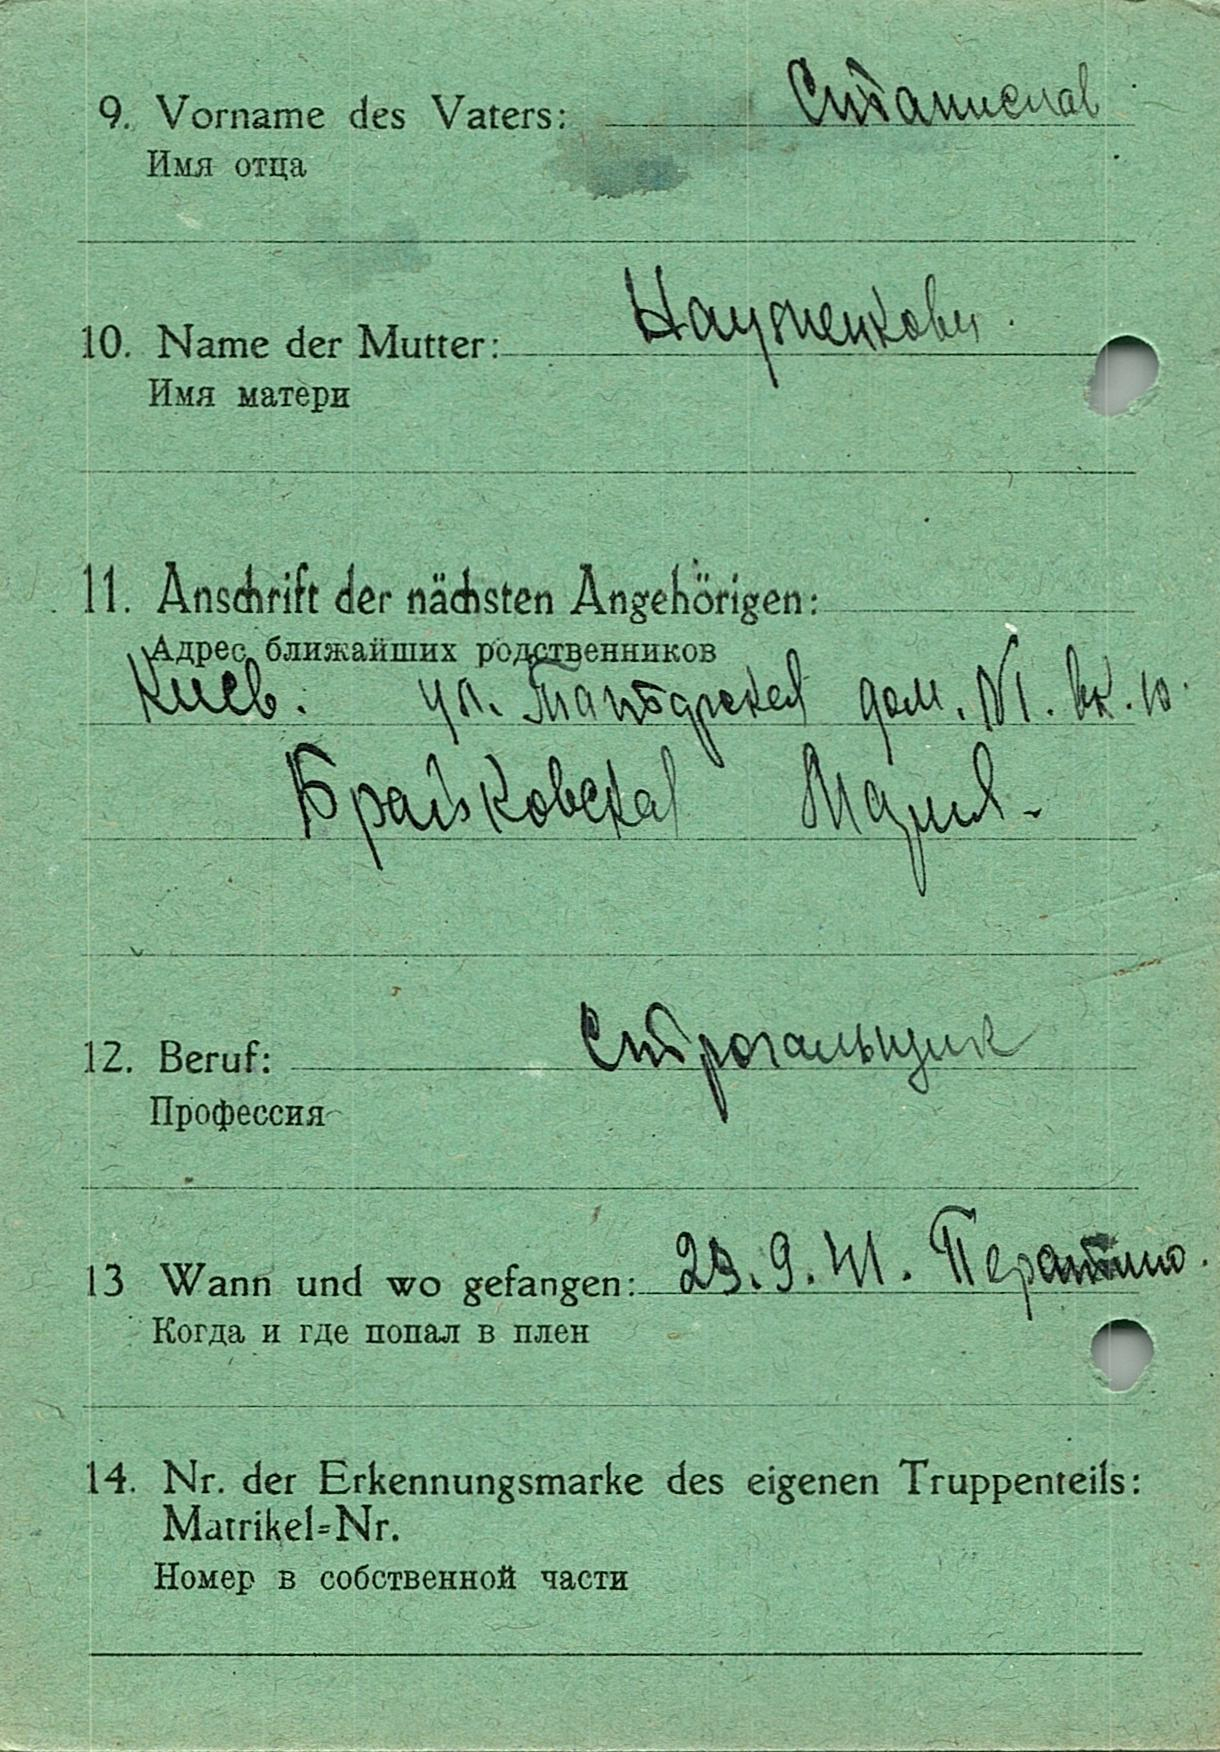 9. Vorname des Vaters: Станислав
Имя отца
10. Name der Mutter:
Имя матери
11. Anschrift der nächsten Angehörigen:
Адрес ближайших родственников
Киев. ул. дом. №1. кк. 10.
Брайковская Мария
12. Beruf: Строгальщик
Профессия
13 Wann und wo gefangen: 23.9.41.
Когда и где попал в плен
14. Nr. der Erkennungsmarke des eigenen Truppenteils:
Matrikel=Nr.
Номер в собственной части